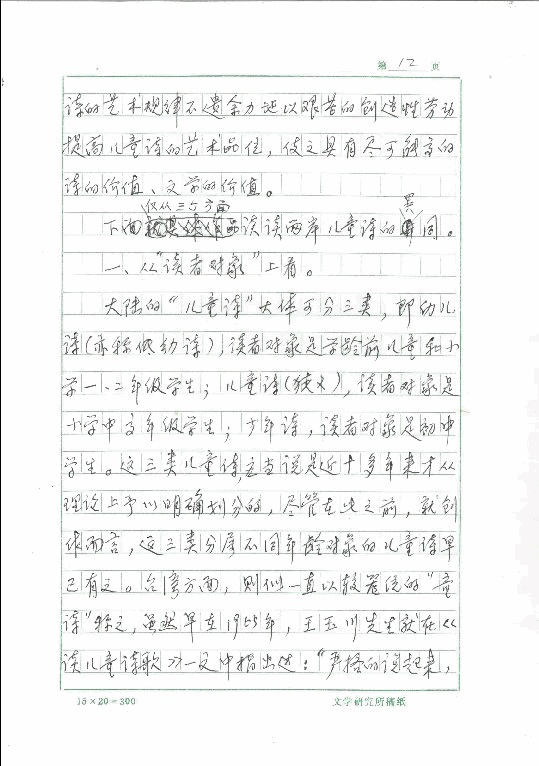 第 12 页
诗的艺术规律不遗余力还以艰苦的创造性劳动
提高儿童诗的艺术品位，使之具有尽可能高的
诗的价值、文学的价值。
仅从三个方面
下面谈谈两岸儿童诗的异同。
一、从“读者对象”上看。
大陆的“儿童诗”大体可分三类，即幼儿
诗(亦称低幼诗)，读者对象是学龄前儿童和小
学一、二年级学生；儿童诗(狭义)，读者对象是
小学中高年级学生；少年诗，读者对象是初中
学生。这三类儿童诗，应当说是近十多年来才从
理论上予以明确划分的，尽管在此之前，就创
作而言，这三类分属不同年龄对象的儿童诗早
已有之。台湾方面，则似一直以较笼统的“童
诗”称之，虽然早在1965年，王玉川先生就在《
谈儿童诗歌》一文中指出过：“严格的说起来，
15×20=300
文学研究所稿纸